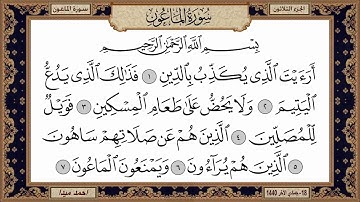 الجزء الثلاثون
سورة الماعون
سُورَةُ الْمَاعُونِ
بِسْمِ اللَّهِ الرَّحْمَٰنِ الرَّحِيمِ
أَرَءَيْتَ الَّذِي يُكَذِّبُ بِالدِّينِ ١ فَذَٰلِكَ الَّذِي يَدُعُّ
الْيَتِيمَ ٢ وَلَا يَحُضُّ عَلَىٰ طَعَامِ الْمِسْكِينِ ٣ فَوَيْلٌ
لِّلْمُصَلِّينَ ٤ الَّذِينَ هُمْ عَن صَلَاتِهِمْ سَاهُونَ
٥ الَّذِينَ هُمْ يُرَاءُونَ ٦ وَيَمْنَعُونَ الْمَاعُونَ ٧
1440 - 18
أحمد